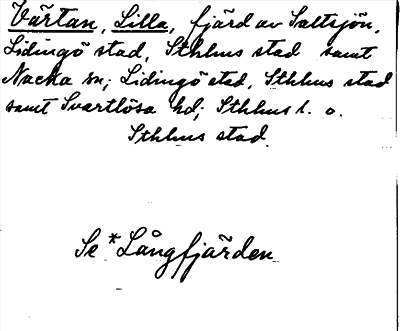 Värtan, Lilla, fjärd av Saltsjön,
Lidingö stad, Sthlms stad samt
Nacka sn; Lidingö stad, Sthlms stad
samt Svartlösa hd; Sthlms l. o.
Sthlms stad.
Se *Långfjärden